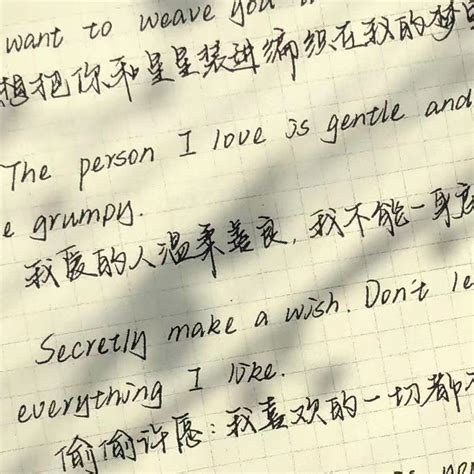 want to weave you
想把你和星星装进编织在我的梦
The person I love is gentle and
e grumpy.
我爱的人温柔善良，我不能一身
Secretly make a wish. Don't le
everything I like.
偷偷许愿：我喜欢的一切都